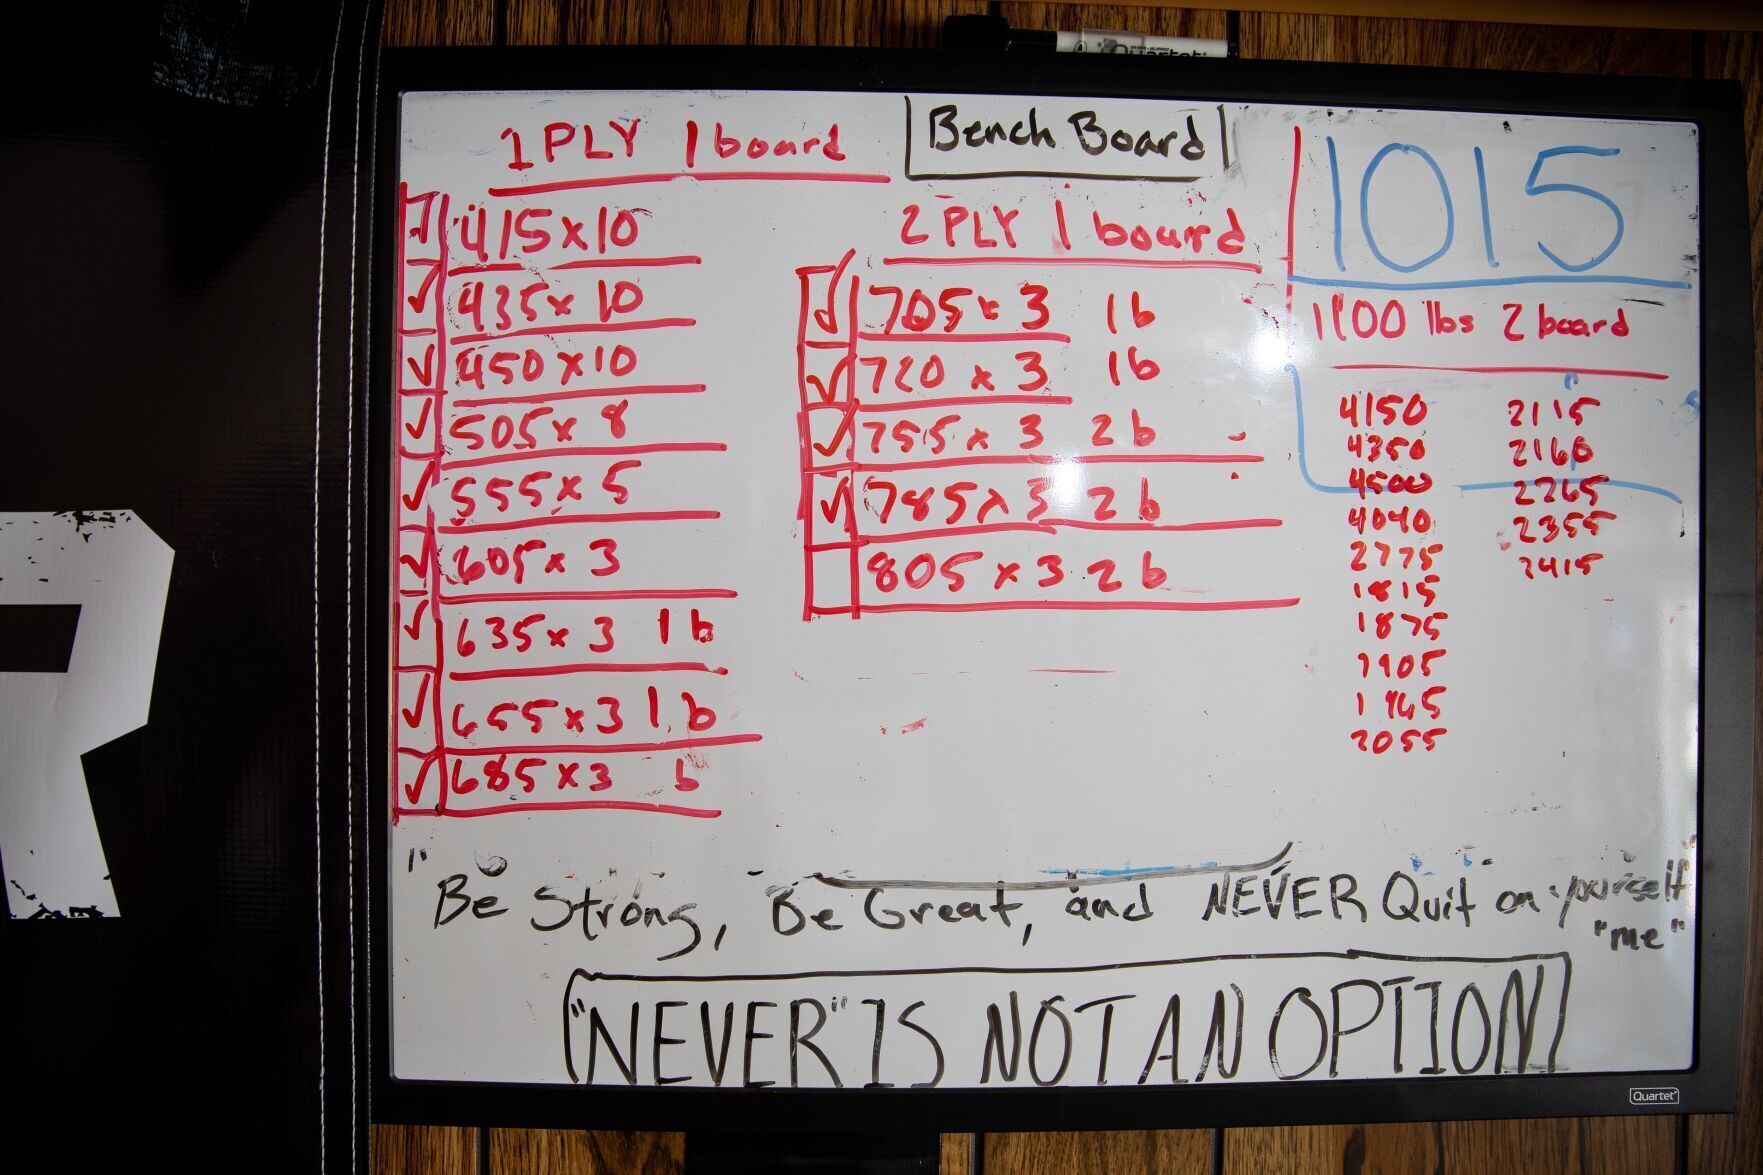 Quartet
Bench Board
1 PLY 1 board
415 x 10
435 x 10
450 x 10
505 x 8
555 x 5
605 x 3
635 x 3 1 b
655 x 3 1 b
685 x 3 b
2 PLY 1 board
705 x 3 1b
720 x 3 1b
755 x 3 2 b
785 x 3 2 b
805 x 3 2 b
1015
1100 lbs 2 board
4150
4350
4500
4040
2775
1815
1875
1905
1965
2055
2115
2160
2265
2355
2415
"Be Strong, Be Great, and NEVER Quit on yourself"
"me"
"NEVER" IS NOT AN OPTION
Quartet
R